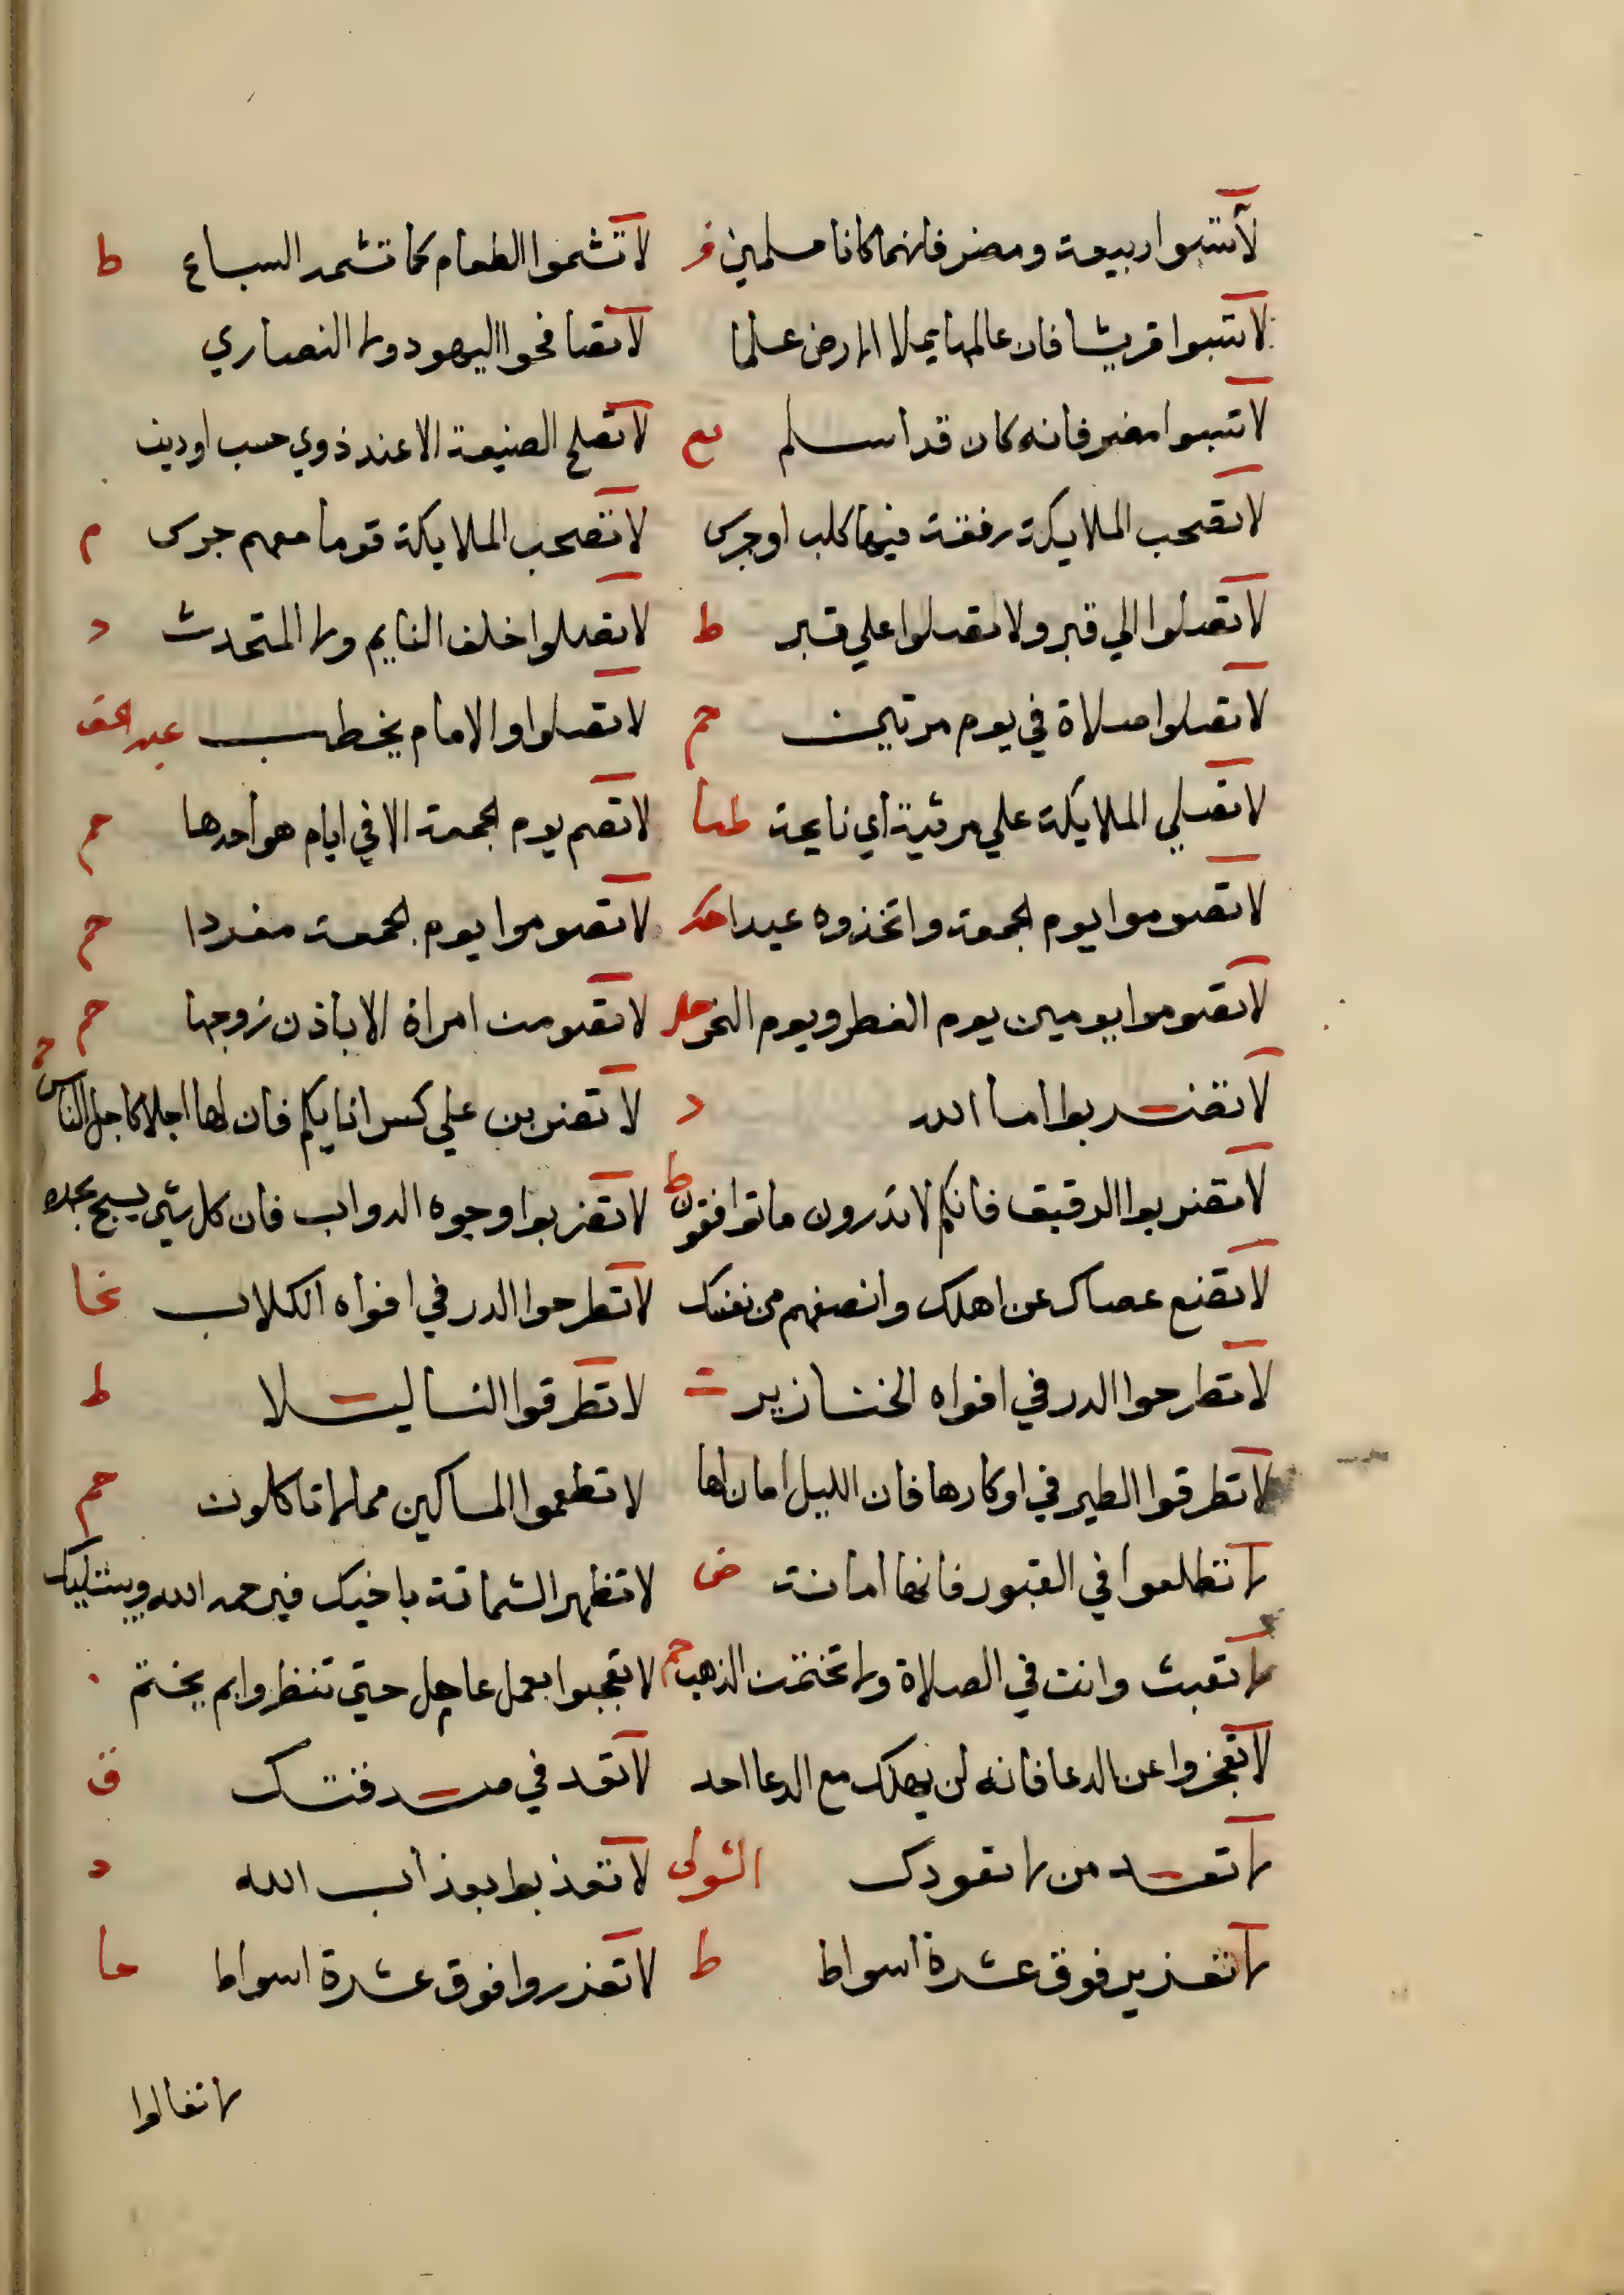 لا تسبوا ربيعة ومضر فانهما كانا مسلمين فر لا تشموا الطعام كما تشمه السباع ط
لا تسبوا قريشا فان عالمها يملا الارض علما لا تصافحوا اليهود ولا النصاري
لا تسبوا مضر فانه كان قد اسلم لا تصلح الصنيعة الا عند ذوي حسب او دين
لا تصحب الملايكة رفقة فيها كلب او جرس لا تصحب الملايكة قوما معهم جرس م
لا تصلوا الي قبر ولا تصلوا علي قبر ط لا تصلوا خلف النايم ولا المتحدث د
لا تصلوا صلاة في يوم مرتين حم لا تصلوا والامام يخطب عبد الحق
لا تصلي الملايكة علي مرثية اي نايحة طيا لا تصم يوم الجمعة الا في ايام هو احدها حم
لا تصوموا يوم الجمعة واتخذوه عيدا لا تصوموا يوم الجمعة مفردا حم
لا تصوموا يومين يوم الفطر ويوم النحر لا تصومن امراة الا باذن زوجها حم
لا تضربوا اما الله د لا تضربن علي كسر انايكم فان لها اجلا كاجل الناس
لا تضربوا الرقيق فانكم لا تدرون ما توافقون ط لا تضربوا وجوه الدواب فان كل شي يسبح بحمده
لا تضع عصاك عن اهلك وانصفهم من نفسك لا تطرحوا الدر في افواه الكلاب نحا
لا تطرحوا الدر في افواه الخنازير لا تطرقوا النسا ليلا ط
لا تطرقوا الطير في اوكارها فان الليل امان لها لا تطعموا المساكين مما لا تاكلون حم
لا تطلعوا في القبور فانها امانة ض لا تظهر الشماتة باخيك فيرحمه الله ويبتليك
لا تعبث وانت في الصلاة ولا تختمت الذهب حم لا تعجبوا بعمل عامل حتي تنظروا بم يختم
لا تعجزوا عن الدعا فانه لن يهلك مع الدعا احد لا تعد في صدقتك ق
لا تعد من لا تعودك لا تعذبوا بعذاب الله د
لا تعزير فوق عشرة اسواط ط لا تعزروا فوق عشرة اسواط ها
لا تغالوا